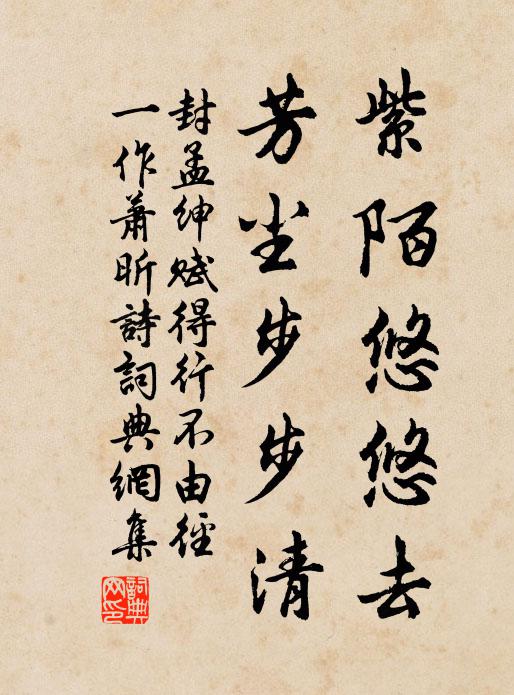 紫陌悠悠去
芳尘步步清
封孟绅赋得行不由径
一作萧昕诗词典网集
词典网印